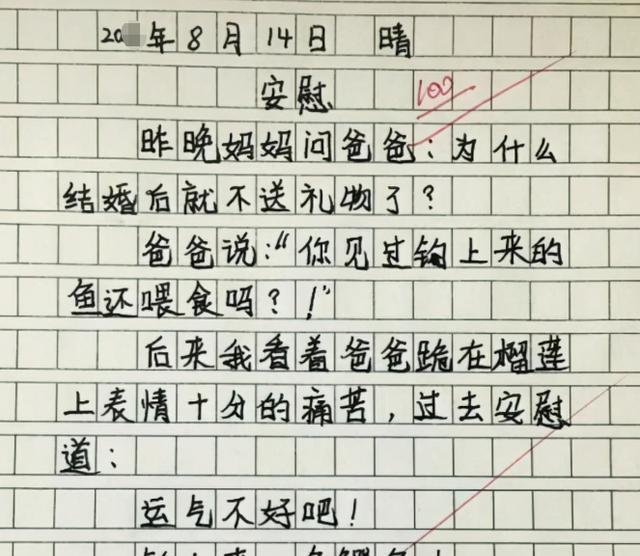 20 年8月14日 晴
安慰
100
昨晚妈妈问爸爸：为什么
结婚后就不送礼物了？
爸爸说：“你见过钩上来的
鱼还喂食吗？！”
后来我看着爸爸跪在榴莲
上表情十分的痛苦，过去安慰
道：
运气不好吧！